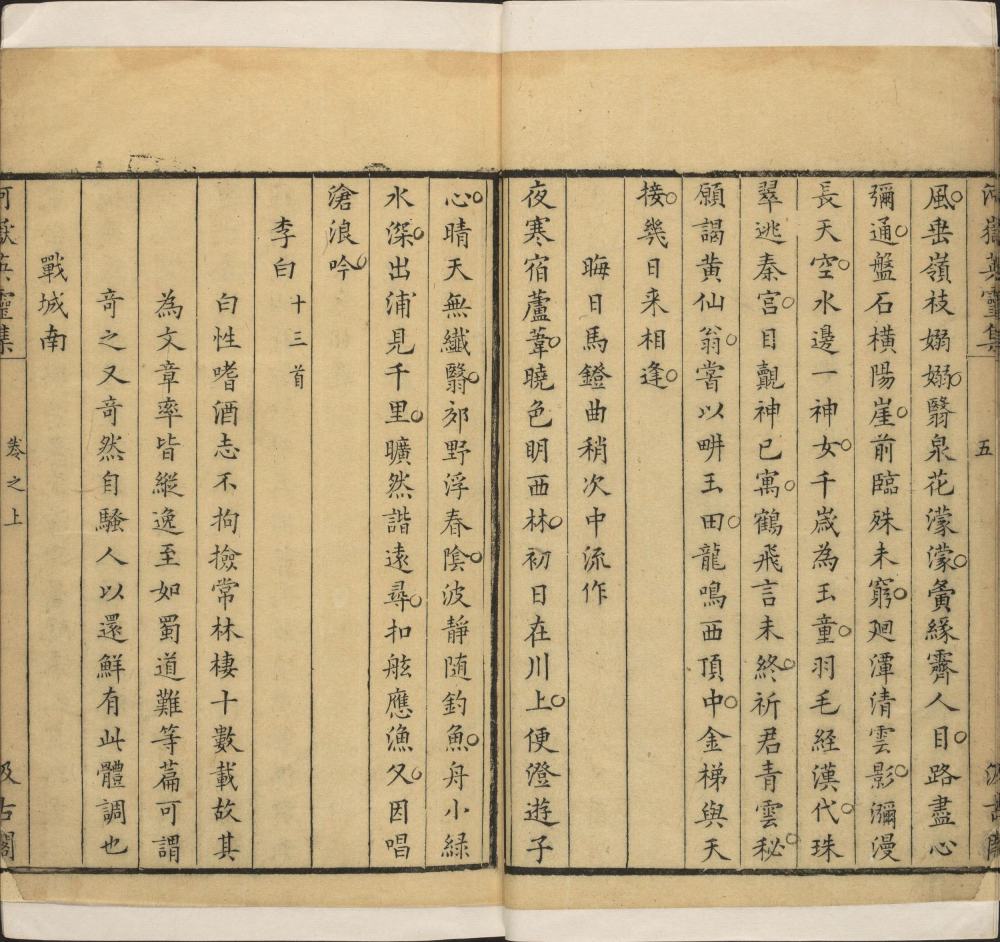 河嶽英靈集 五 汲古閣
風岊嶺枝嫋嫋翳泉花濛濛夤緣霽人目路盡心
彌通盤石橫陽崖前臨殊未窮廻潭清雲影瀰漫
長天空水邊一神女千歲為玉童羽毛經漢代珠
翠逃秦宮目覿神已寓鶴飛言未終祈君青雲秘
願謁黃仙翁嘗以畊玉田龍鳴西頂中金梯與天
接幾日来相逢
晦日馬鐙曲稍次中流作
夜寒宿蘆葦曉色明西林初日在川上便澄遊子
心晴天無纖翳郊野浮春陰波靜随釣魚舟小綠
水深出浦見千里曠然諧遠尋扣舷應漁父因唱
滄浪吟
李白 十三首
白性嗜酒志不拘撿常林棲十數載故其
為文章率皆縱逸至如蜀道難等篇可謂
竒之又竒然自騷人以還鮮有此體調也
戰城南
河嶽英靈集 卷之上 汲古閣